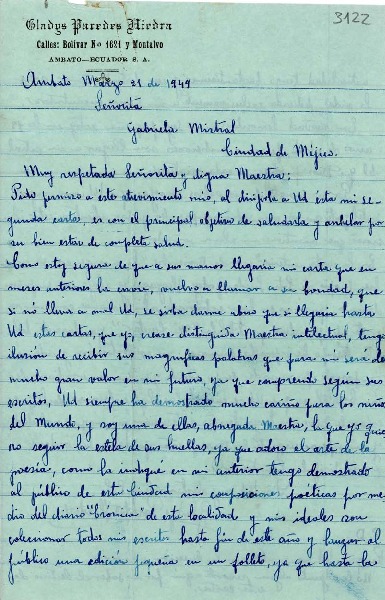 3122
Gladys Paredes Riedra
Calles: Bolívar No 1621 y Montalvo
AMBATO—ECUADOR S. A.
Ambato Marzo 21 de 1949
Señorita
Gabriela Mistral
Ciudad de Méjico.
Muy respetada Señorita y digna Maestra:
Pido permiso a éste atrevimiento mío, al dirijirla a Ud ésta mi se-
gunda carta, es con el principal objetivo de saludarla y anhelar por
su bien estar de completa salud.
Como estoy segura de que a sus manos llegaría mi carta que en
meses anteriores ha envié, vuelvo a llamar a su bondad, que
si nó llena a mal Ud, se sirba darme abiso que si llegarón hasta
Ud estas cartas, que yo, crease distinguida Maestra intelectual, tengo
ilusión de recibir sus magníficas palabras que para mi será de
mucho gran valor en mi futuro, ya que comprendo según sus
escritos, Ud siempre ha demostrado mucho cariño para los niños
del Mundo, y soy una de ellas, abnegada Maestra, la que yo quie
ro seguir la estela de sus huellas, ya que adoro el arte de la
poesía, como la indique en mi anterior tengo demostrado
al público de esta Ciudad mis composiciones poéticas por me-
dio del diario "Crónica" de esta localidad y mis ideales son
coleccionar todos mis escritos hasta fin de este año y lanzar al
público una edición pequeña en un folleto, ya que hasta la